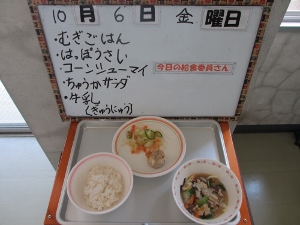 10月6日金曜日
・むぎごはん
・はっぽうさい
・コーンシューマイ
今日の給食委員さん
・ちゅうかサラダ
・牛乳
(ぎゅうにゅう)